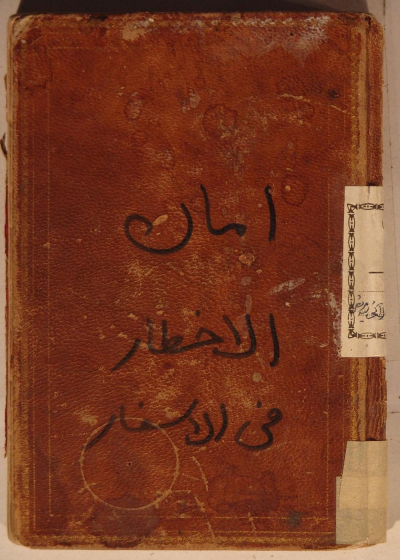 امان
الاخطار
فى الاسفار